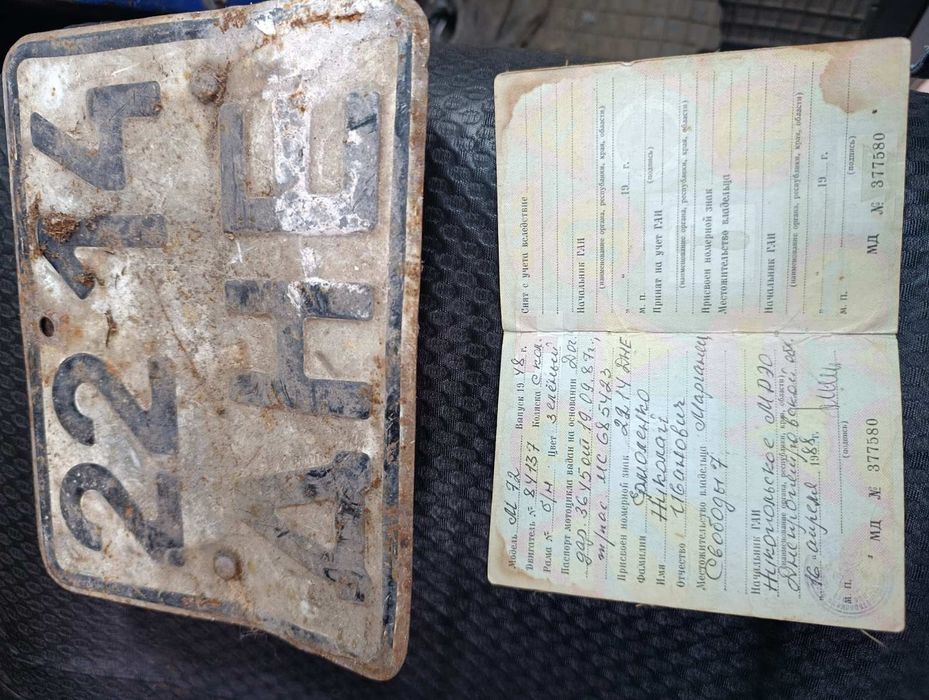 2214
ДНЕ
Модель М 72 Выпуск 1948 г.
Двигатель № 84137 Коляска с кол.
Рама № б/н Цвет зелёный
Паспорт мотоцикла выдан на основании Дог.
дар. 36 45 от 19.09.87г.,
т/пас МС 685423
Присвоен номерной знак 2214 ДНЕ
Фамилия Ермоленко
Имя Николай
Отчество Иванович
Местожительство владельца Марганец
Свободы 7
Начальник ГАИ
Никопольское МРЭО
(наименование органа, республики, края, области)
Днепропетровской обл.
"16" апреля 1988 г.
М. П. (подпись)
МД № 377580
Снят с учета вследствие
Начальник ГАИ
(наименование органа, республики, края, области)
" " 19 г.
М. П. (подпись)
Принят на учет ГАИ
(наименование органа, республики, края, области)
Присвоен номерной знак
Местожительство владельца
Начальник ГАИ
(наименование органа, республики, края, области)
" " 19 г.
М. П. (подпись)
МД № 377580